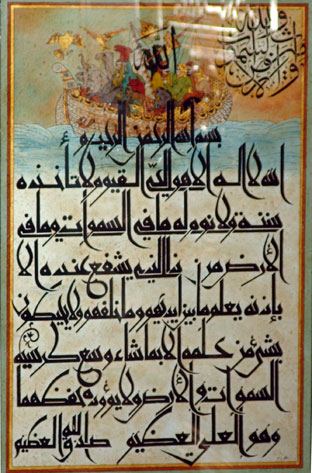 بسم الله الرحمن الرحيم
الله لا اله الا هو الحي القيوم لا تأخذه
سنة ولا نوم له ما في السموات وما في
الأرض من ذا الذي يشفع عنده الا
بإذنه يعلم ما بين ايديهم وما خلفهم ولا يحيطون
بشئ من علمه الا بما شاء وسع كرسيه
السموات والأرض ولا يؤوده حفظهما
وهو العلي العظيم صدق الله العظيم